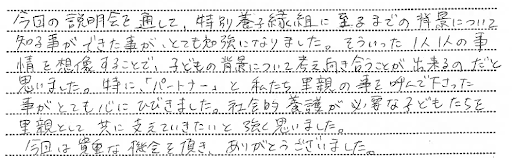 今回の説明会を通して、特別養子縁組に至るまでの背景について
知る事ができた事が、とても勉強になりました。そういった1人1人の事
情を想像することで、子どもの背景について考え向き合うことが出来るのだと
思いました。特に、「パートナー」と私たち里親の事を呼んで下さった
事がとても心にひびきました。社会的養護が必要な子どもたちを
里親として共に支えていきたいと強く思いました。
今回は貴重な機会を頂き、ありがとうございました。